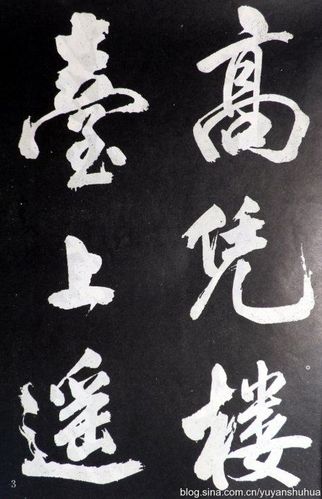 高凭楼
臺上遥
3
blog.sina.com.cn/yuyanshuhua